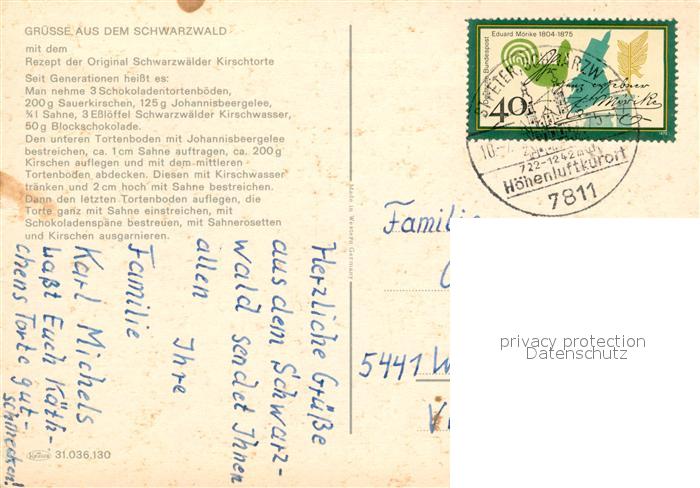 GRÜSSE AUS DEM SCHWARZWALD
mit dem
Rezept der Original Schwarzwälder Kirschtorte
Seit Generationen heißt es:
Man nehme 3 Schokoladentortenböden,
200 g Sauerkirschen, 125 g Johannisbeergelee,
¾ l Sahne, 3 Eßlöffel Schwarzwälder Kirschwasser,
50 g Blockschokolade.
Den unteren Tortenboden mit Johannisbeergelee
bestreichen, ca. 1 cm Sahne auftragen, ca. 200 g
Kirschen auflegen und mit dem mittleren
Tortenboden abdecken. Diesen mit Kirschwasser
tränken und 2 cm hoch mit Sahne bestreichen.
Dann den letzten Tortenboden auflegen, die
Torte ganz mit Sahne einstreichen, mit
Schokoladenspäne bestreuen, mit Sahnerosetten
und Kirschen ausgarnieren.
Herzliche Grüße
aus dem Schwarz-
wald sendet Ihnen
allen Ihre
Familie
Karl Michels
Laßt Euch Käth-
chens Torte gut
schmecken!
31.036.130
Made in Western Germany
Eduard Mörike 1804-1875
Deutsche Bundespost
40
ST. PETER, SCHWARZW
722-1242 m
Höhenluftkurort
7811
Familie
5441
privacy protection
Datenschutz